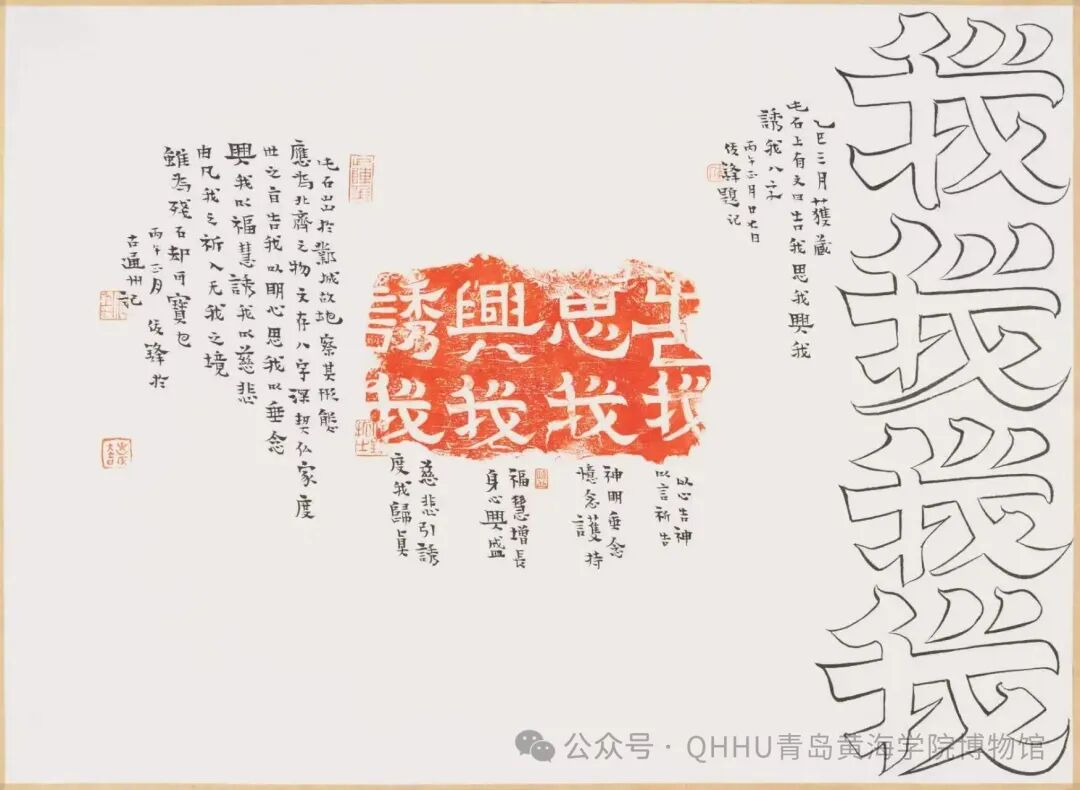 我我我我
乙巳三月獲藏
此石上有文曰告我思我興我
誘我八字
丙午正月廿七日
鋒題記
告我
思我
興我
誘我
以心告神
以言祈告
神明垂念
憶念護持
福慧增長
身心興盛
慈悲引誘
度我歸真
此石出於鄴城故地察其形態
應為北齊之物文存八字深契仏家度
世之旨告我以明心思我以垂念
興我以福慧誘我以慈悲
由凡我之祈入无我之境
雖為殘石却可寶也
丙午正月 鋒於
古通州記
公众号 · QHHU青岛黄海学院博物馆